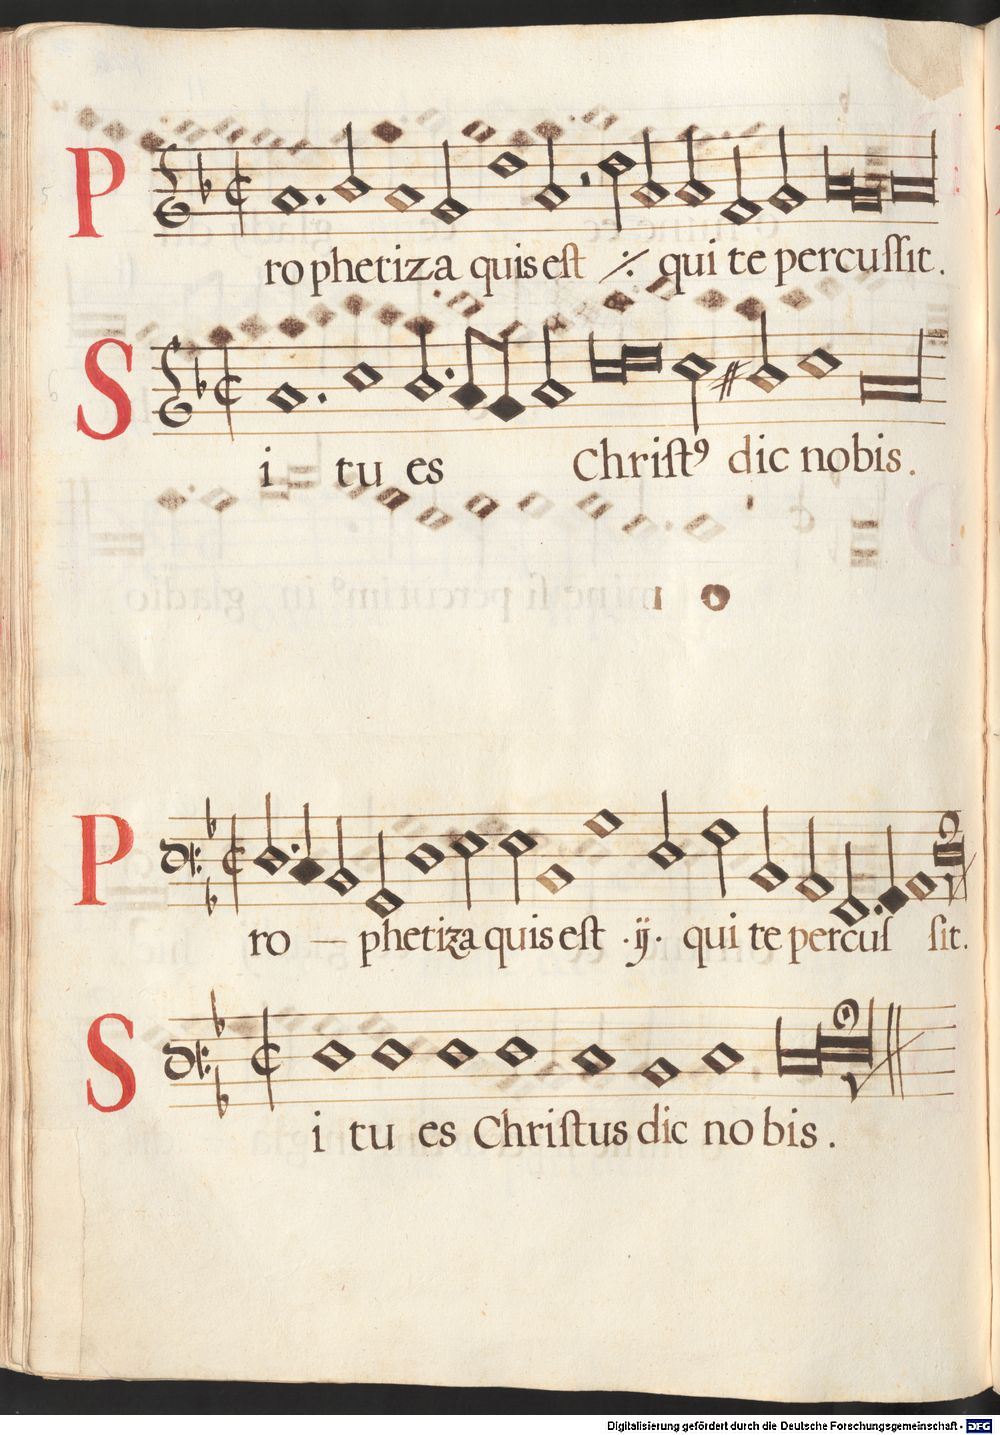 P
rophetiza quis est ·/· qui te percuſſit.
S
i tu es Chriſtꝰ dic nobis.
P
ro — phetiza quis est ·ij· qui te percuſ ſit.
S
i tu es Chriſtus dic nobis.
Digitalisierung gefördert durch die Deutsche Forschungsgemeinschaft - DFG